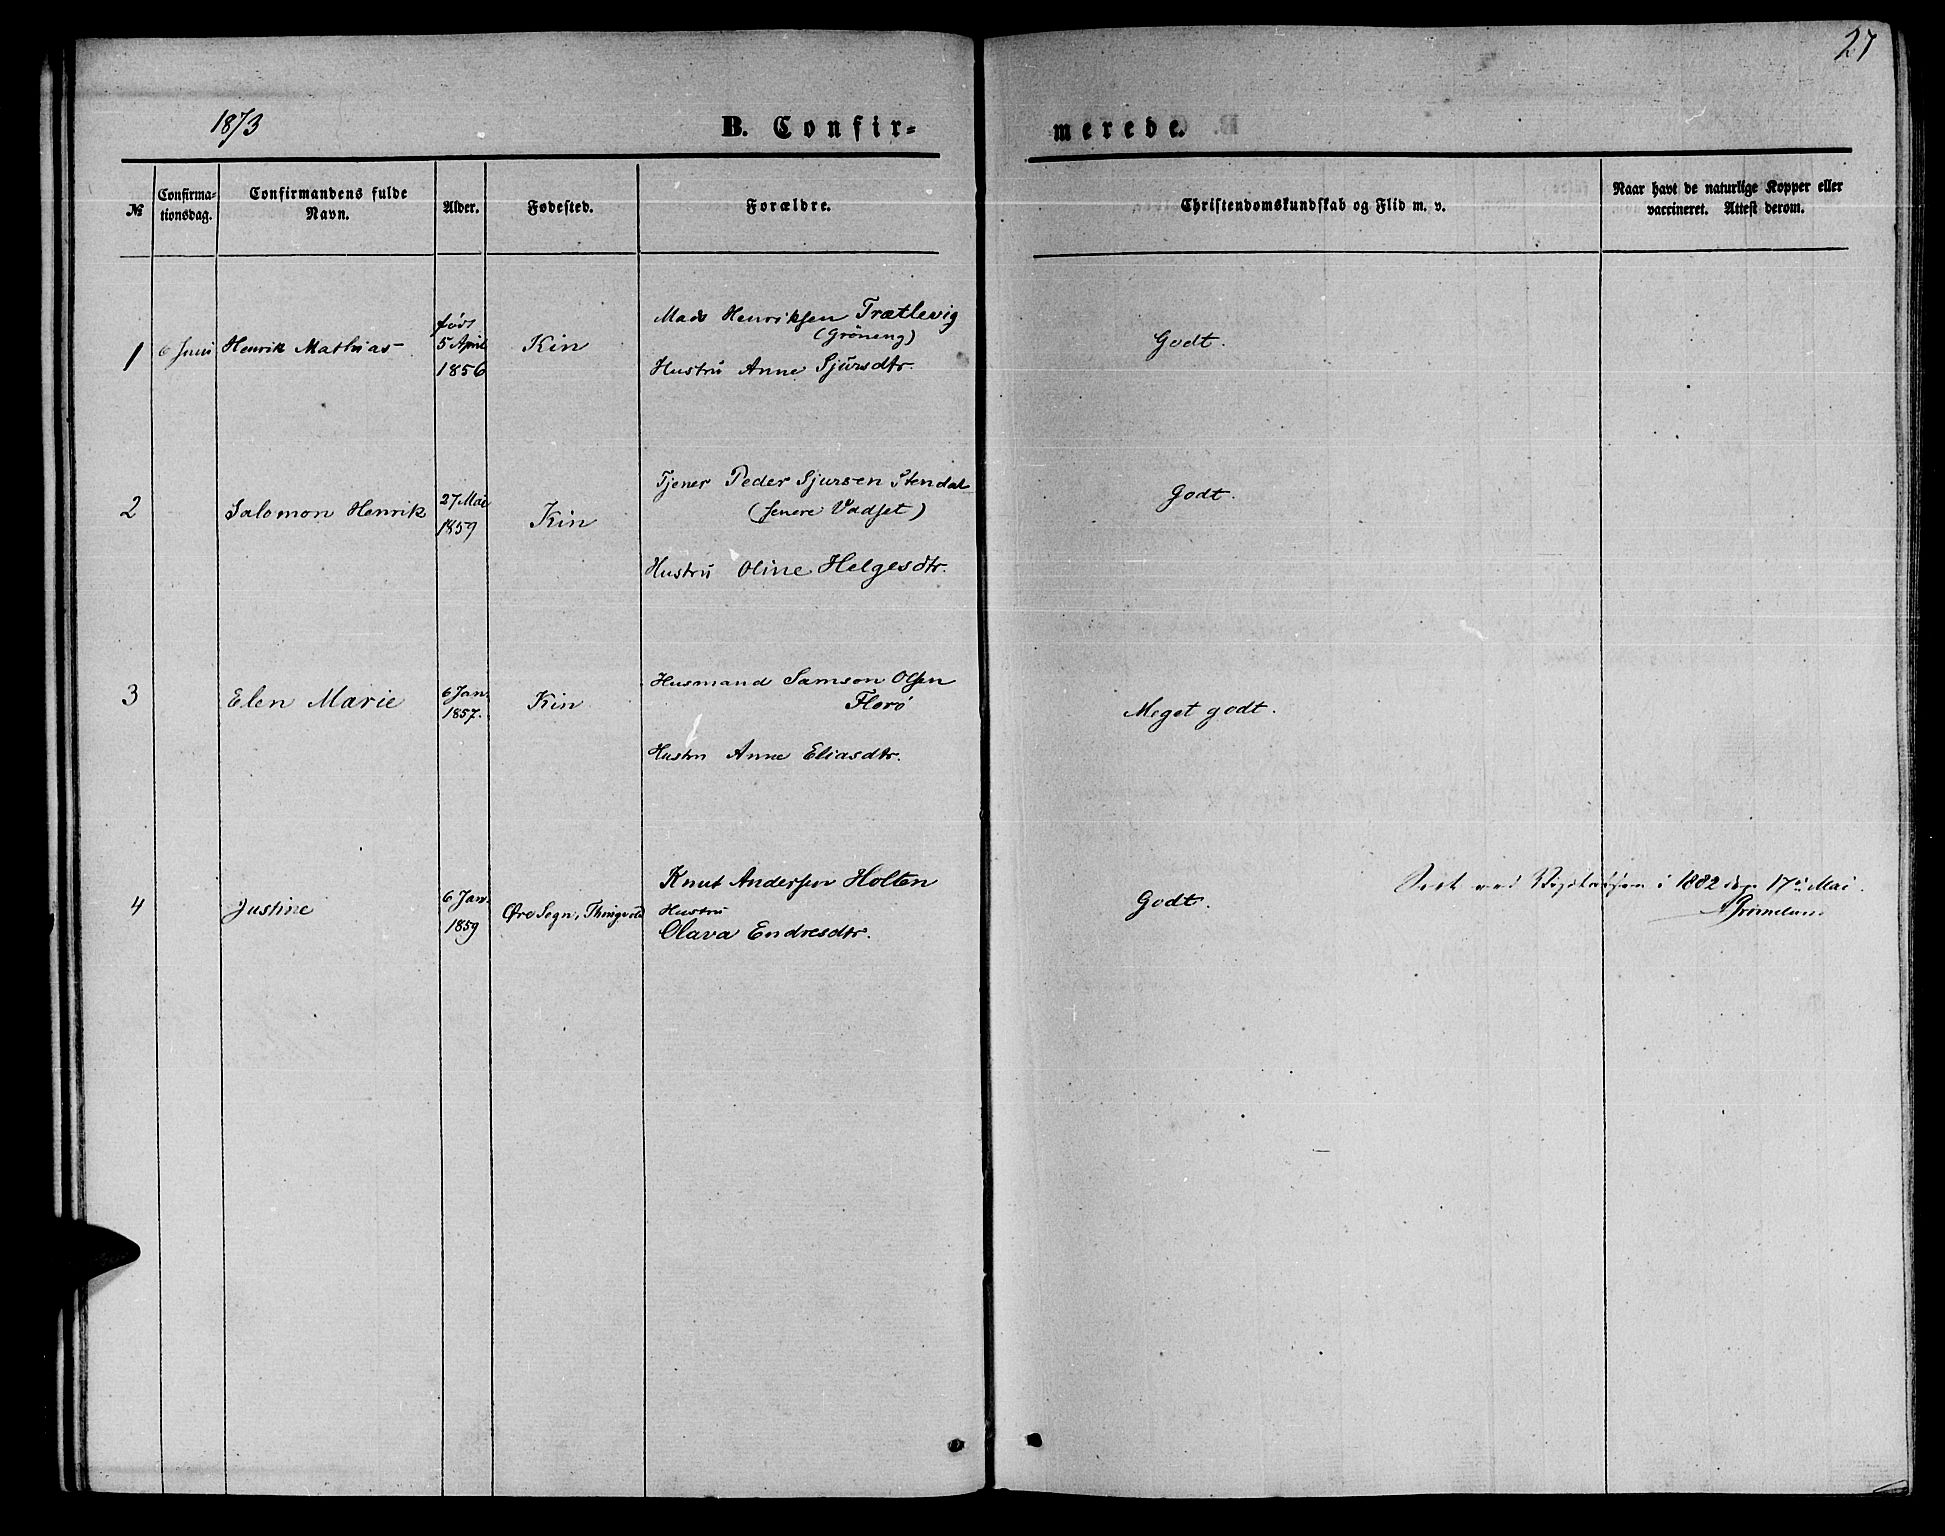 27
1873
B. Confir-
merede.
№
Confirma-
tionsdag.
Confirmandens fulde
Navn.
Alder.
Fødested.
Forældre.
Christendomskundskab og Flid m. v.
Naar havt de naturlige Kopper eller
vaccineret. Attest derom.
1 6 Juni Henrik Mathias
født
5 April
1856
Kin
Mads Henriksen Trætlevig
(Grøneng)
Hustru Anne Sjursdtr.
Godt.
2 Salomon Henrik
27 Mai
1859
Kin
Tjener Peder Sjursen Stendal
(senere Vadset)
Hustru Oline Helgesdtr.
Godt.
3 Elen Marie
6 Jan.
1857.
Kin
Husmand Samson Olsen
Florø
Hustru Anne Eliasdtr.
Meget godt.
4 Justine
6 Jan.
1859
Øre Sogn, Thingvold
Knut Anderssen Holten
Hustru
Olava Endresdtr.
Godt.
ved i 1882 17 Mai.